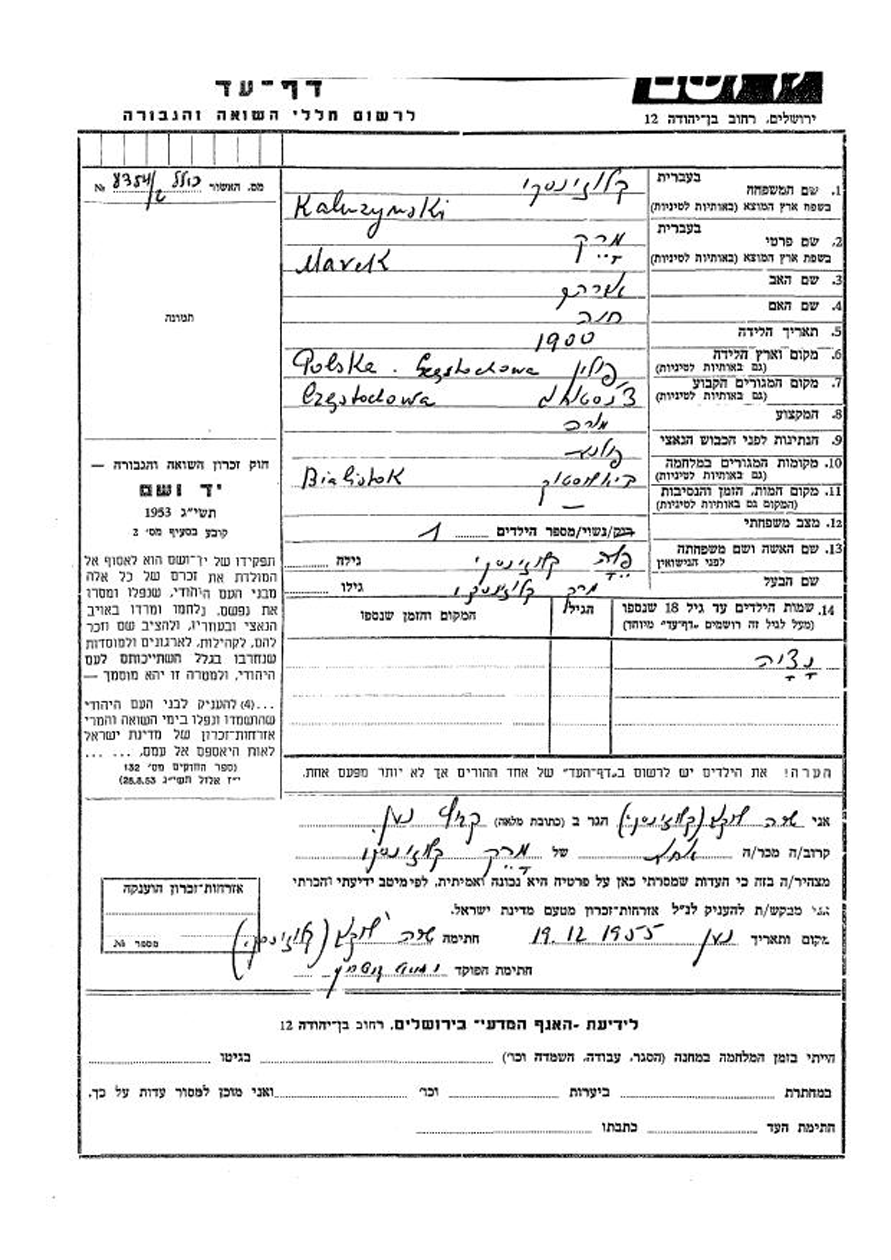 דף־עד
לרשום חללי השואה והגבורה
ירושלים, רחוב בן־יהודה 12
מס. האשור כולל 8354/2 №
תמונה
חוק זכרון השואה והגבורה —
יד ושם
תשי״ג 1953
קובע בסעיף מס׳ 2
תפקידו של יד־ושם הוא לאסוף אל
המולדת את זכרם של כל אלה
מבני העם היהודי, שנפלו ומסרו
את נפשם, נלחמו ומרדו באויב
הנאצי ובעוזריו, ולהציב שם וזכר
להם, לקהילות, לארגונים ולמוסדות
שנחרבו בגלל השתייכותם לעם
היהודי, ולמטרה זו יהא מוסמך —
...(4) להעניק לבני העם היהודי
שהושמדו ונפלו בימי השואה והמרי
אזרחות־זכרון של מדינת ישראל
לאות היאספם אל עמם, ... ...
(ספר החוקים מס׳ 132
י״ז אלול תשי״ג 28.8.53)
1. שם המשפחה בעברית קלוזינסקי
בשפת ארץ המוצא (באותיות לטיניות) Kaluzynski
2. שם פרטי בעברית מרק
בשפת ארץ המוצא (באותיות לטיניות) Marek
3. שם האב
4. שם האם חנה
5. תאריך הלידה 1900
6. מקום וארץ הלידה (גם באותיות לטיניות) פולין Polska. Częstochowa
7. מקום המגורים הקבוע (גם באותיות לטיניות) Częstochowa
8. המקצוע מורה
9. הנתינות לפני הכבוש הנאצי
10. מקומות המגורים במלחמה (גם באותיות לטיניות) ביאליסטוק Bialistok
11. מקום המות, הזמן והנסיבות (המקום גם באותיות לטיניות) —
12. מצב משפחתי רווק/נשוי/מספר הילדים 1
13. שם האשה ושם משפחתה לפני הנישואין קלוזינסקי גילה
שם הבעל מרק קלוזינסקי גילו
14. שמות הילדים עד גיל 18 שנספו (מעל לגיל זה רושמים „דף־עד״ מיוחד) הגיל המקום והזמן שנספו
הערה! את הילדים יש לרשום ב„דף־העד״ של אחד ההורים אך לא יותר מפעם אחת.
אני שרה (קלוזינסקי) הגר ב (כתובת מלאה)
קרוב/ה מכר/ה של מרק קלוזינסקי
מצהיר/ה בזה כי העדות שמסרתי כאן על פרטיה היא נכונה ואמיתית, לפי מיטב ידיעתי והכרתי
אני מבקש/ת להעניק לנ״ל אזרחות־זכרון מטעם מדינת ישראל.
מקום ותאריך 19.12.1955 חתימה שרה (קלוזינסקי)
חתימת הפוקד
אזרחות־זכרון הוענקה
מספר №
לידיעת ־האגף המדעי־ בירושלים, רחוב בן־יהודה 12
הייתי בזמן המלחמה במחנה (הסגר, עבודה, השמדה וכו׳) בגיטו
במחתרת ביערות וכו׳ ואני מוכן למסור עדות על כך.
חתימת העד כתבתו